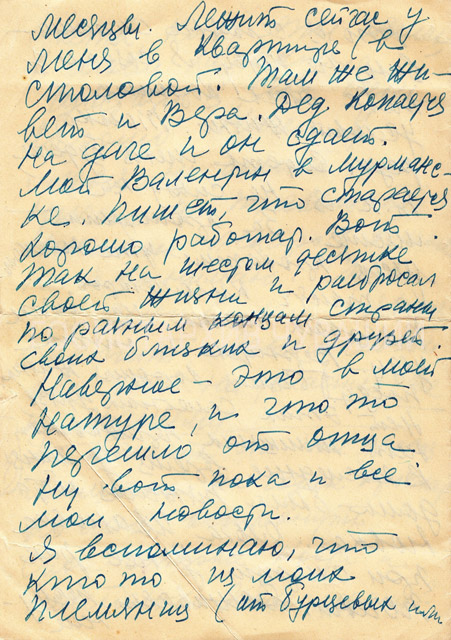 месяцы. Лежит сейчас у
меня в квартире (в
столовой. Там же жи-
вет и Вера. Дед копается
на даче и он сдает.
Мой Валентин в Мурманс-
ке. Пишет, что старается
хорошо работать. Вот
так на шестом десятке
своей жизни и разбросал
по разным концам страны
своих близких и друзей.
Наверное – это в моей
натуре, и что то
перешло от отца
Ну вот пока и все
мои новости.
Я вспоминаю, что
кто то из моих
племянниц (от Бурцевых или